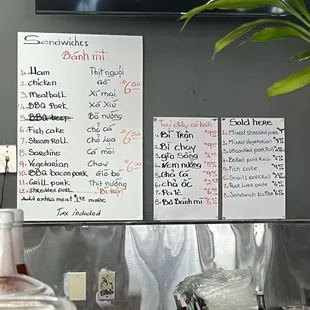 Sandwiches
Bánh mì
1- Ham Thịt nguội
2- chicken gà
3- Meatball Xí mại
4- BBQ Pork Xá Xíu
5- BBQ beef Bò nướng
6- Fish cake chả cá
7- Steam Roll chả lụa
8- Sardine Cá mòi
9- Vegetarian Chay
10- BBQ bacon pork
11- Grill pork Thịt nướng
12- Shredded pork Bì tròn
Add extra meat more
Tax included
Tại đây có bán
1- Bì Trộn
2- Bì chay
3- giò Sống
4- Nem nướng
5- Chả cá
6- chả ốc
7- Pa tê
8- Bơ Bánh mì
Sold here
1- Mixed shredded pork
2- Mixed Vegetarian
3-
4-
5- Fish cake
6-
7- Pork Liver paste
8- Sandwich butter